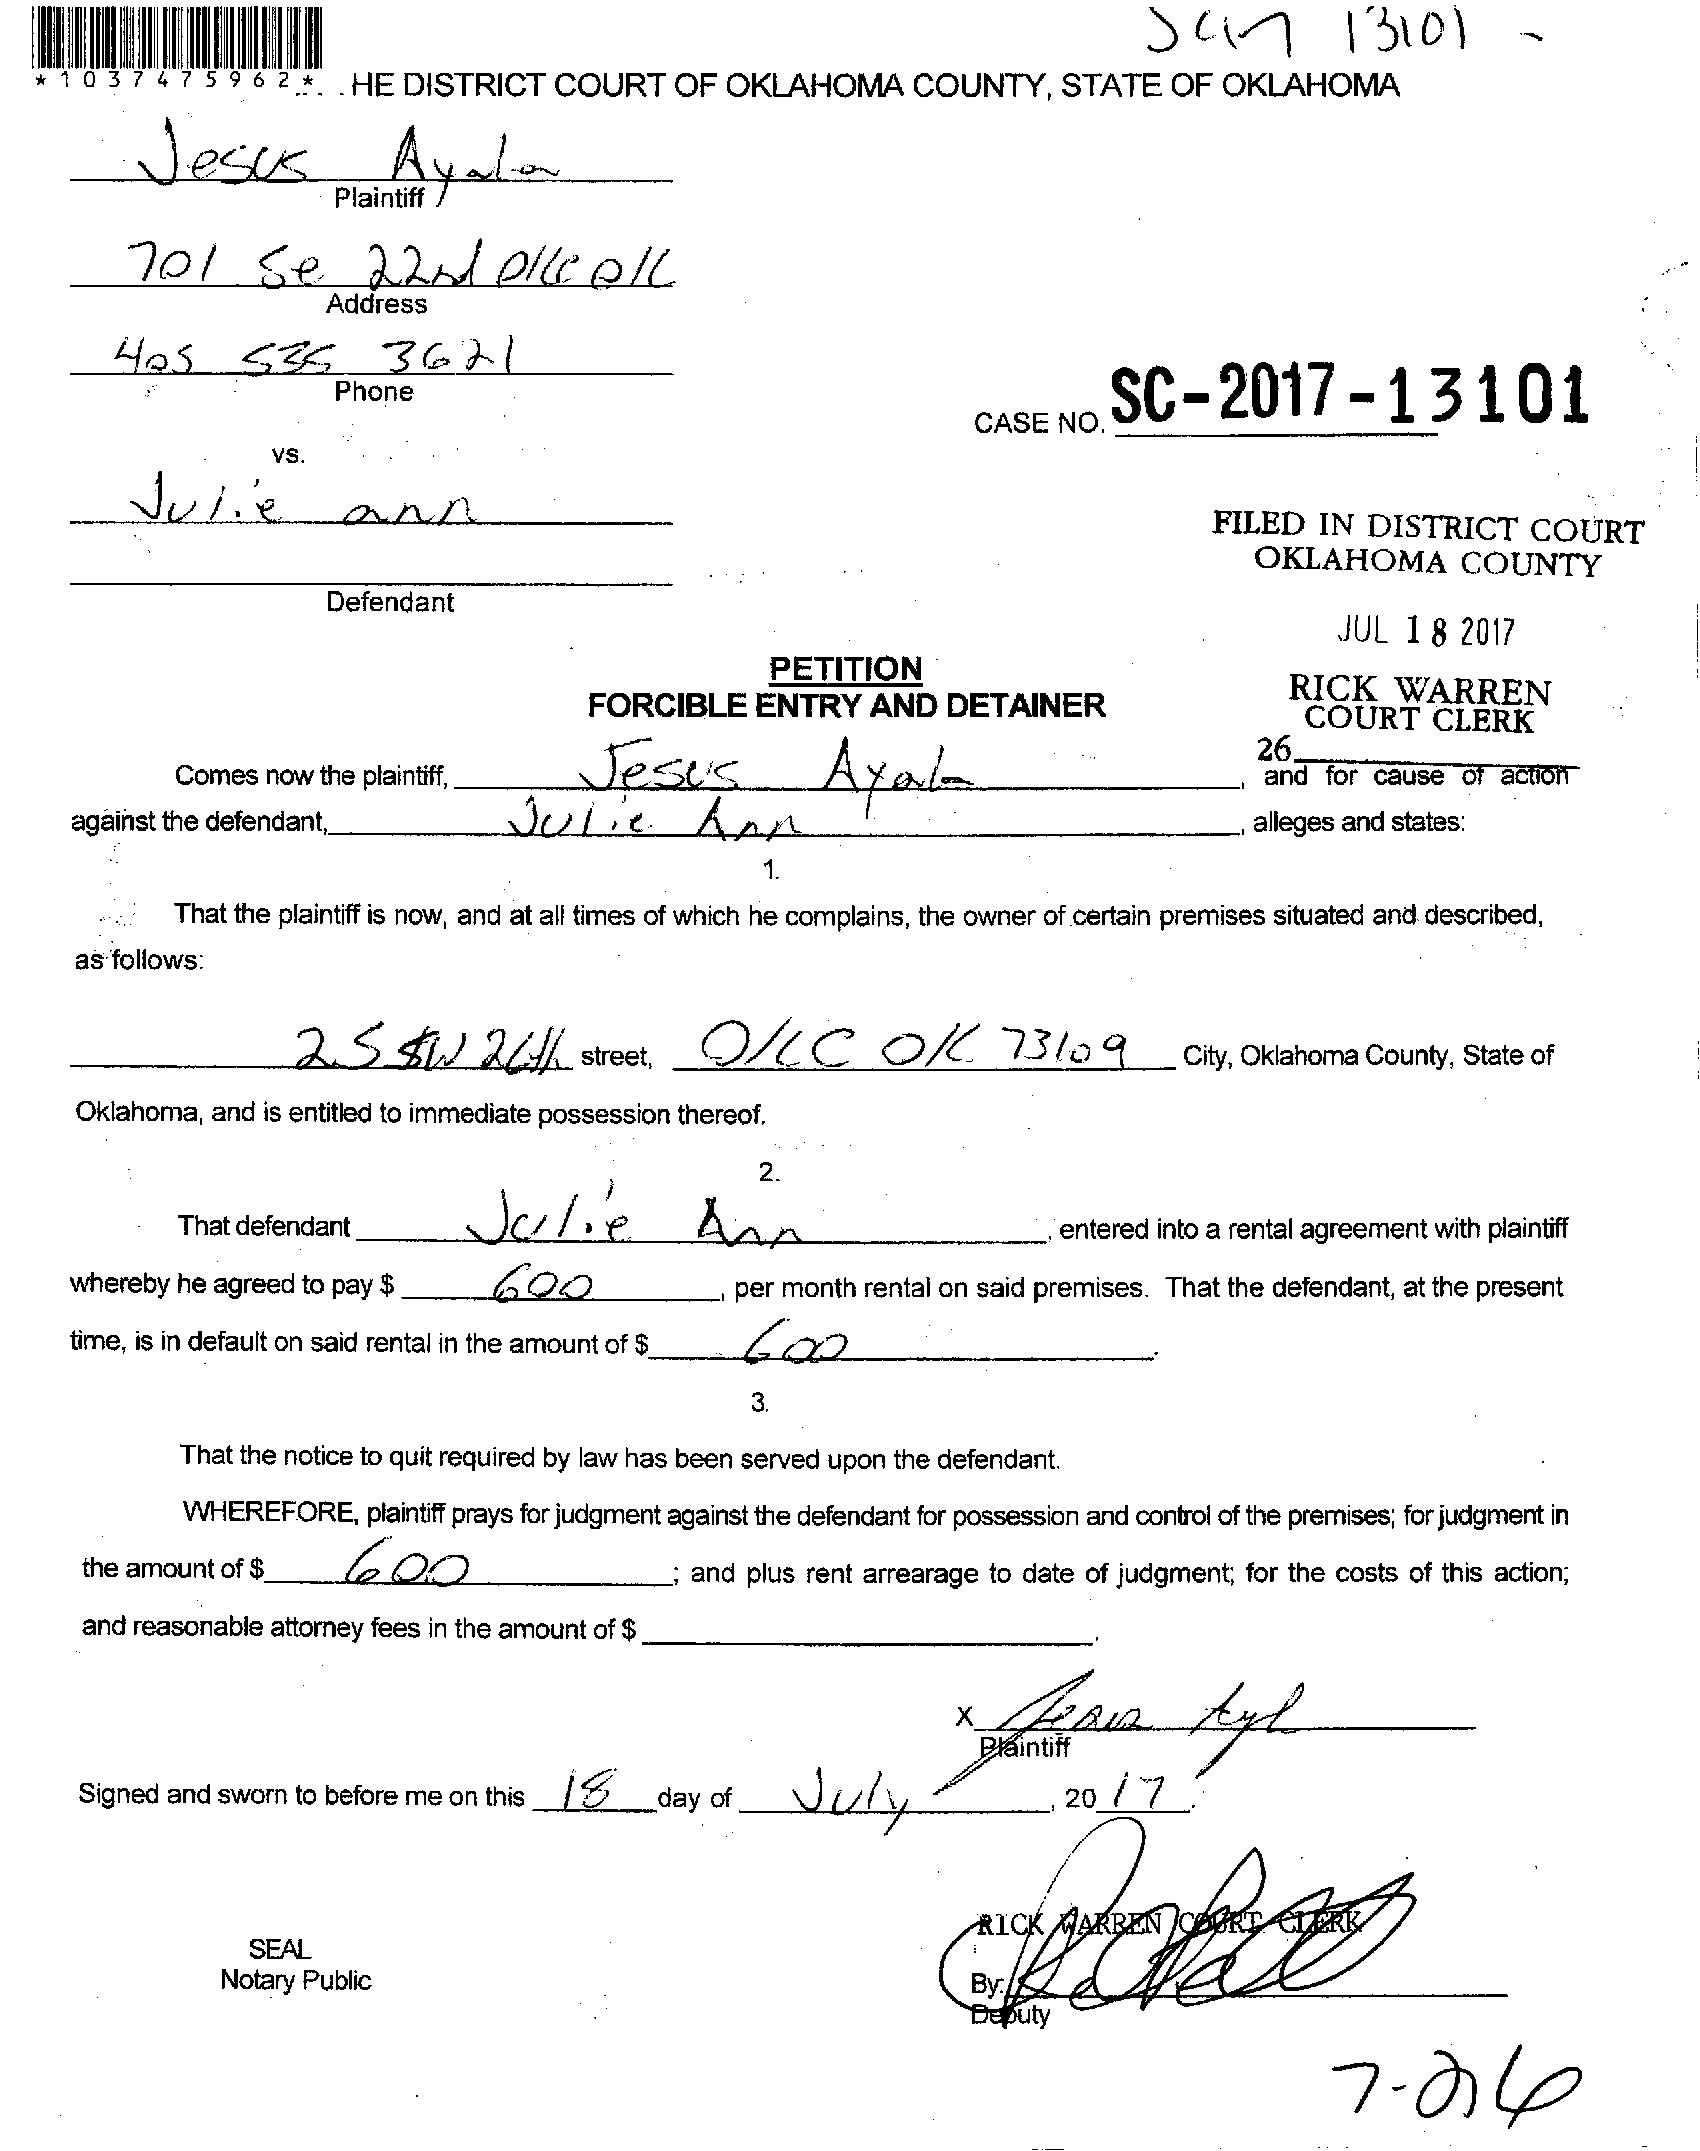 SC17 13101 -
*1037475962* HE DISTRICT COURT OF OKLAHOMA COUNTY, STATE OF OKLAHOMA
Jesus Ayala
Plaintiff
701 Se 22nd OKC OK
Address
405 535 3621
Phone
CASE NO. SC-2017-13101
vs.
Julie ann
FILED IN DISTRICT COURT
OKLAHOMA COUNTY
Defendant
JUL 18 2017
PETITION
FORCIBLE ENTRY AND DETAINER
RICK WARREN
COURT CLERK
26
Comes now the plaintiff, Jesus Ayala, and for cause of action
against the defendant, Julie Ann, alleges and states:
1.
That the plaintiff is now, and at all times of which he complains, the owner of certain premises situated and described,
as follows:
25 SW 26th street, OKC OK 73109 City, Oklahoma County, State of
Oklahoma, and is entitled to immediate possession thereof.
2.
That defendant Julie Ann, entered into a rental agreement with plaintiff
whereby he agreed to pay $ 600, per month rental on said premises. That the defendant, at the present
time, is in default on said rental in the amount of $ 600.
3.
That the notice to quit required by law has been served upon the defendant.
WHEREFORE, plaintiff prays for judgment against the defendant for possession and control of the premises; for judgment in
the amount of $ 600; and plus rent arrearage to date of judgment; for the costs of this action;
and reasonable attorney fees in the amount of $ .
X Jesus Ayl
Plaintiff
Signed and sworn to before me on this 18 day of July, 2017.
RICK WARREN COURT CLERK
SEAL
Notary Public
By:
Deputy
7-26